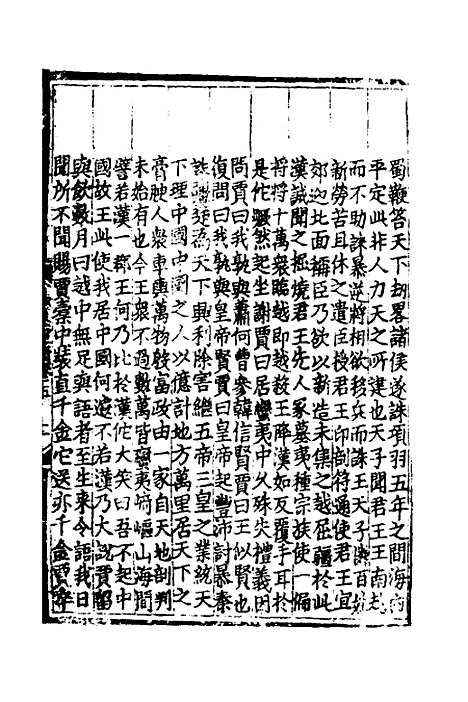 蜀鞭笞天下刼畧諸侯遂誅項羽五年之間海内
平定此非人力天之所建也天子聞君王王南越
而不助誅暴逆將相欲移兵而誅王天子憐百姓
新勞苦且休之遣臣授君王印剖符通使君王宜
郊迎北面稱臣乃欲以新造未集之越屈彊於此
漢誠聞之掘燒君王先人冢墓夷種宗族使一偏
將將十萬衆臨越即越殺王降漢如反覆手耳於
是佗蹶然起坐謝賈曰居蠻夷中久殊失禮義因
問賈曰我孰與蕭何曹參韓信賢賈曰王似賢也
復問曰我孰與皇帝賢賈曰皇帝起豐沛討暴秦
誅彊楚爲天下興利除害繼五帝三皇之業統天
下理中國中國之人以億計地方萬里居天下之
膏腴人衆車輿萬物殷富政由一家自天地剖判
未始有也今王衆不過數萬皆蠻夷崎嶇山海間
譬若漢一郡王何乃比於漢佗大笑曰吾不起中
國故王此使我居中國何遽不若漢乃大說賈留
與飲數月曰越中無足與語者至生來令語我日
聞所不聞賜賈橐中裝直千金它送亦千金賈卒